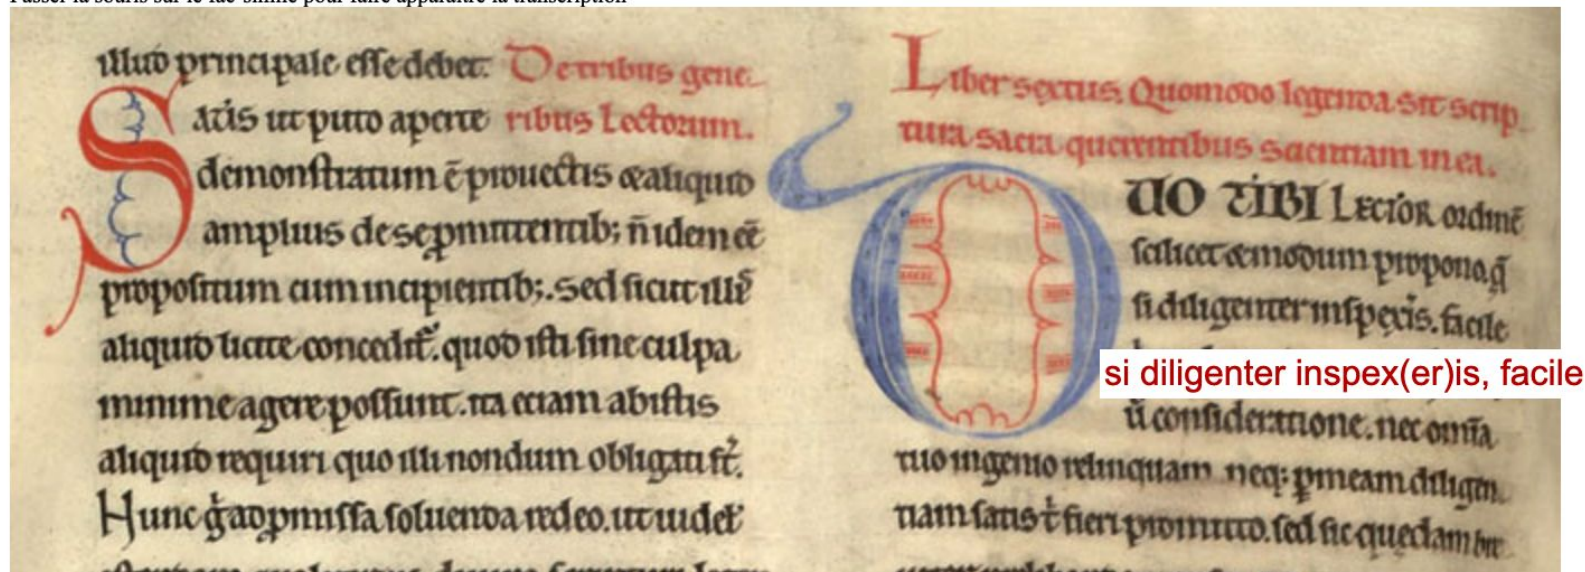 illud principale esse debet. De tribus gene
Satis ut puto aperte ribus Lectorum.
demonstratum ē prouectis & aliquid
amplius de se ꝓmittentib; n̄ idem eē
propositum cum incipientib;. Sed sicut illis
aliquid licite concedit᷑. quod isti sine culpa
minime agere possunt. ita etiam ab istis
aliquid requiri quo illi nondum obligati st̄.
Hunc g̊ ad ꝓmissa soluenda redeo. ut uidel᷑
Liber sextus. Quomodo legenda sit scrip
tura sacra querentibus scientiam in ea.
DUO TIBI LECTOR ordinē
scilicet & modum propono. q̄
si diligenter inspexis. facile
si diligenter inspex(er)is, facile
ū consideratione. nec omīa
tuo ingenio relinquam neq; ꝑ meam diligen
tiam satis t̄ fieri promitto. sed sic quedam bre